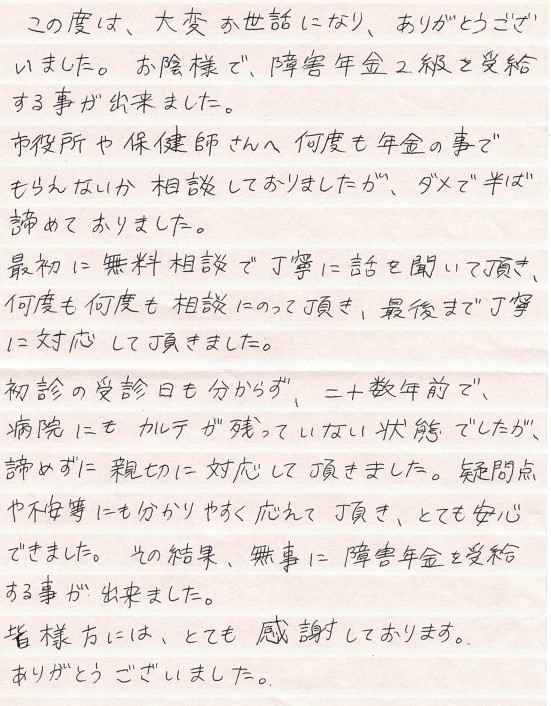 この度は、大変お世話になり、ありがとうござ
いました。お陰様で、障害年金2級を受給
する事が出来ました。
市役所や保健師さんへ何度も年金の事で
もらえないか相談しておりましたが、ダメで半ば
諦めておりました。
最初に無料相談で丁寧に話を聞いて頂き、
何度も何度も相談にのって頂き、最後まで丁寧
に対応して頂きました。
初診の受診日も分からず、二十数年前で、
病院にもカルテが残っていない状態でしたが、
諦めずに親切に対応して頂きました。疑問点
や不安等にも分かりやすく応えて頂き、とても安心
できました。その結果、無事に障害年金を受給
する事が出来ました。
皆様方には、とても感謝しております。
ありがとうございました。